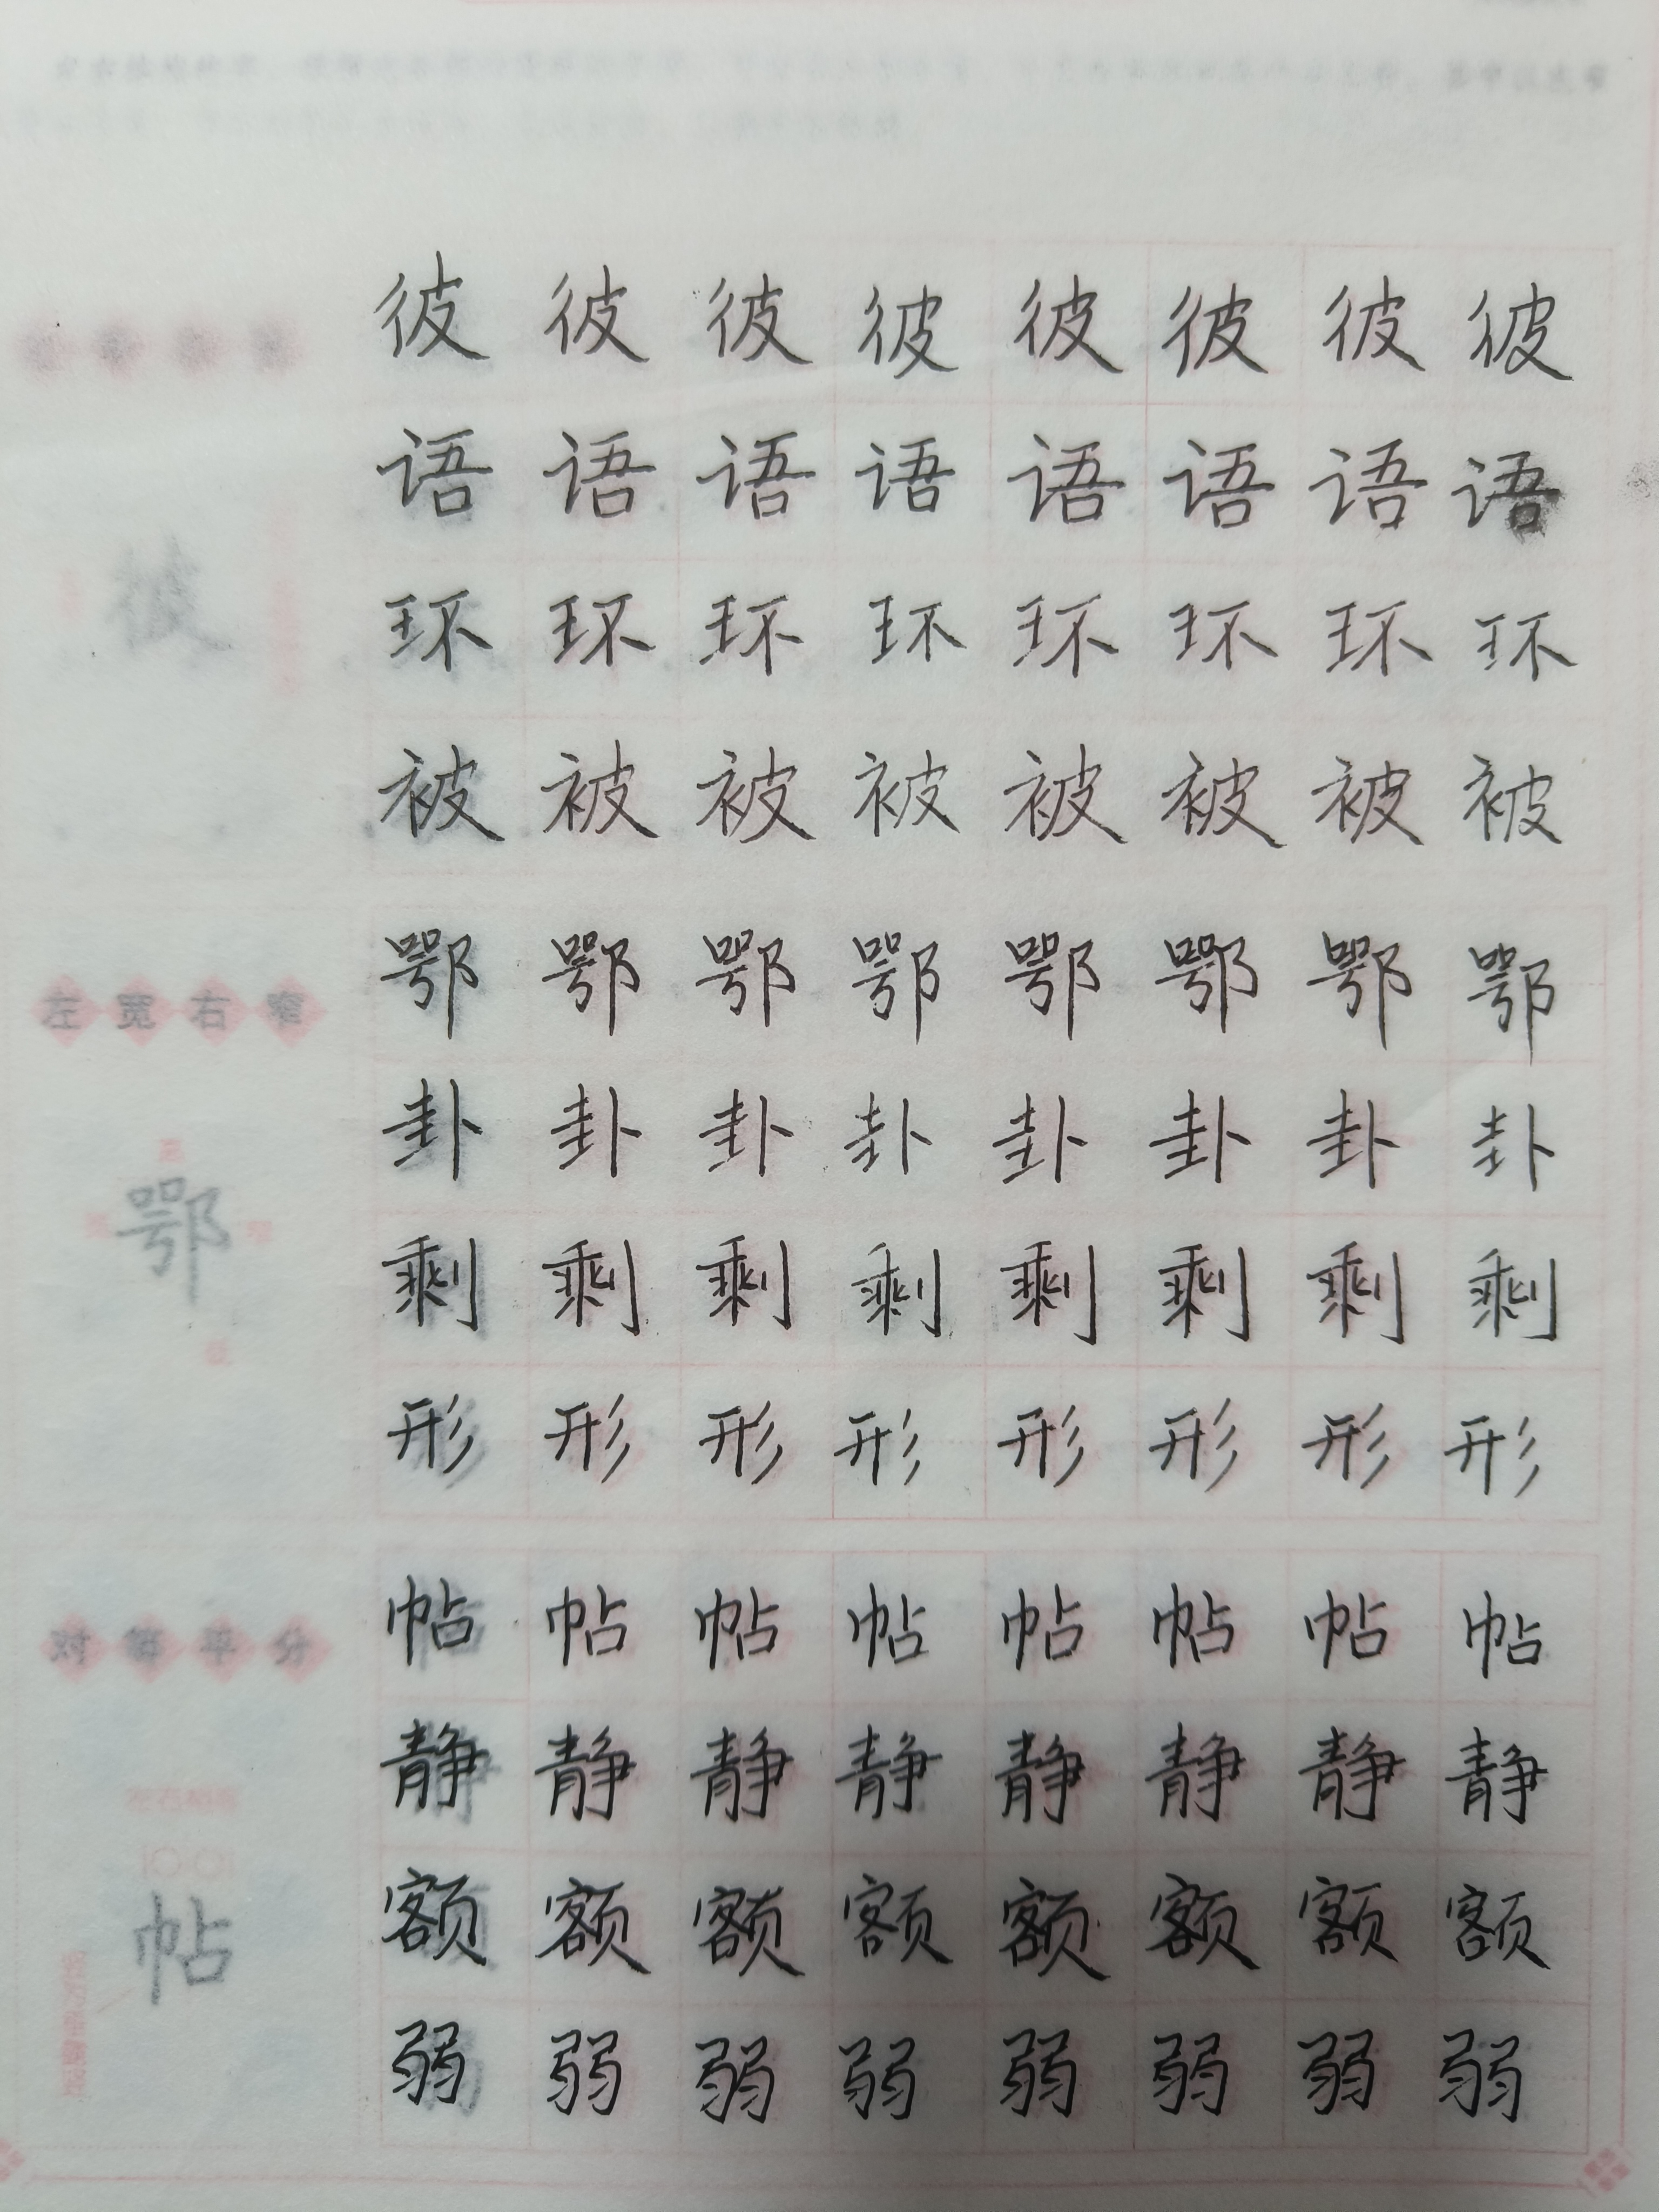 彼 彼 彼 彼 彼 彼 彼 彼
语 语 语 语 语 语 语 语
彼
环 环 环 环 环 环 环 环
被 被 被 被 被 被 被 被
鄂 鄂 鄂 鄂 鄂 鄂 鄂 鄂
左宽右窄
卦 卦 卦 卦 卦 卦 卦 卦
鄂
剩 剩 剩 剩 剩 剩 剩 剩
形 形 形 形 形 形 形 形
帖 帖 帖 帖 帖 帖 帖 帖
对等平分
静 静 静 静 静 静 静 静
额 额 额 额 额 额 额 额
帖
弱 弱 弱 弱 弱 弱 弱 弱